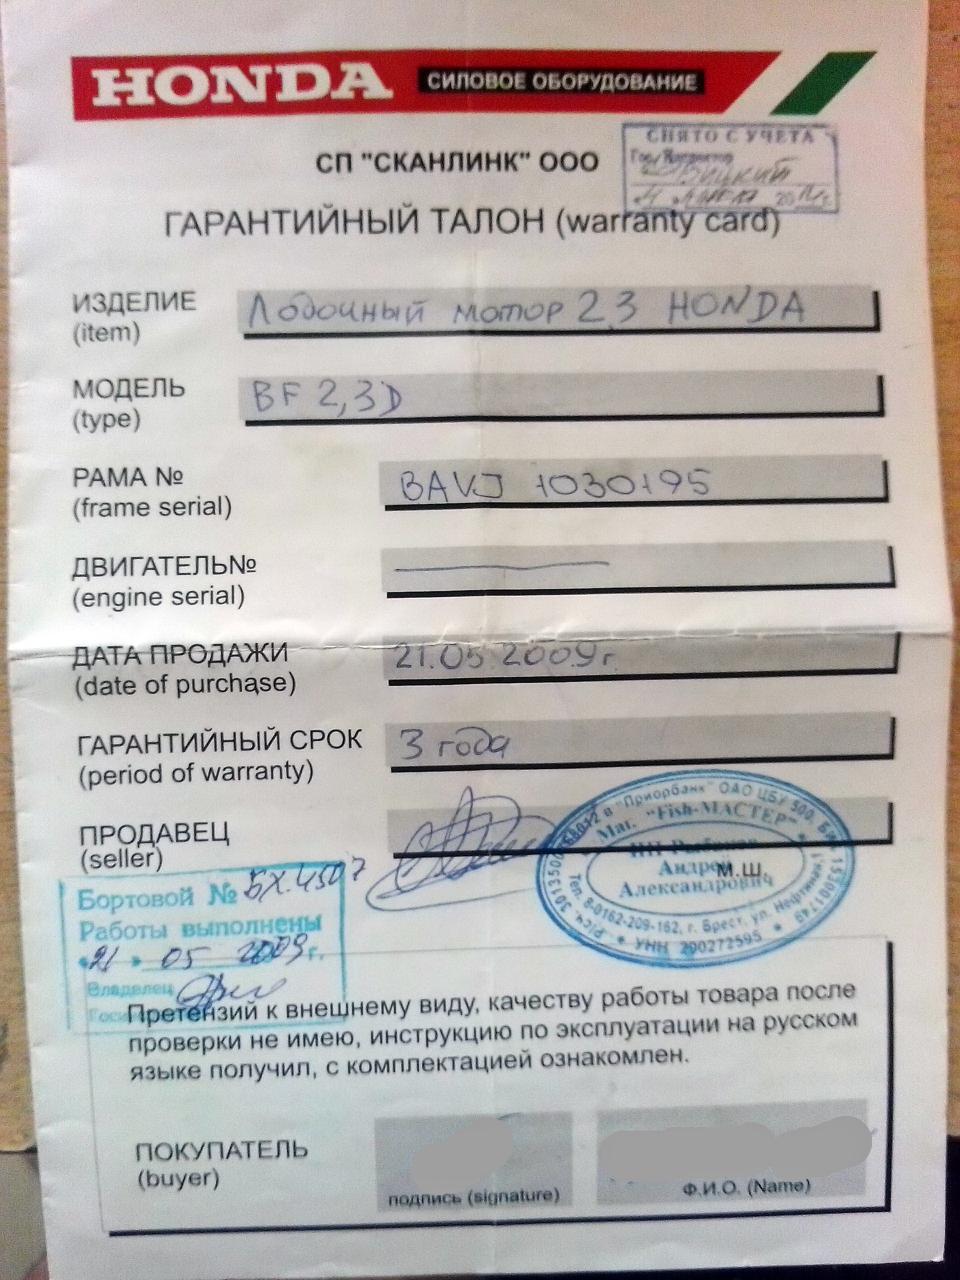 HONDA СИЛОВОЕ ОБОРУДОВАНИЕ
СНЯТО С УЧЕТА
СП "СКАНЛИНК" ООО
20
ГАРАНТИЙНЫЙ ТАЛОН (warranty card)
ИЗДЕЛИЕ Лодочный мотор 2,3 HONDA
(item)
МОДЕЛЬ BF 2,3D
(type)
РАМА № BAVJ 1030195
(frame serial)
ДВИГАТЕЛЬ№
(engine serial)
ДАТА ПРОДАЖИ 21.05.2009г.
(date of purchase)
ГАРАНТИЙНЫЙ СРОК 3 года
(period of warranty)
ПРОДАВЕЦ
(seller)
в "Приорбанк" ОАО ЦБУ 500,
Маг. "Fish-МАСТЕР"
Андрей
Александрович
М.Ш.
Тел. 8-0162-209-162, г. Брест, ул.
УНН 290272595
Бортовой № БХ.4507
Работы выполнены
21 05 2009г.
Владелец
Претензий к внешнему виду, качеству работы товара после
проверки не имею, инструкцию по эксплуатации на русском
языке получил, с комплектацией ознакомлен.
ПОКУПАТЕЛЬ
(buyer)
подпись (signature) Ф.И.О. (Name)